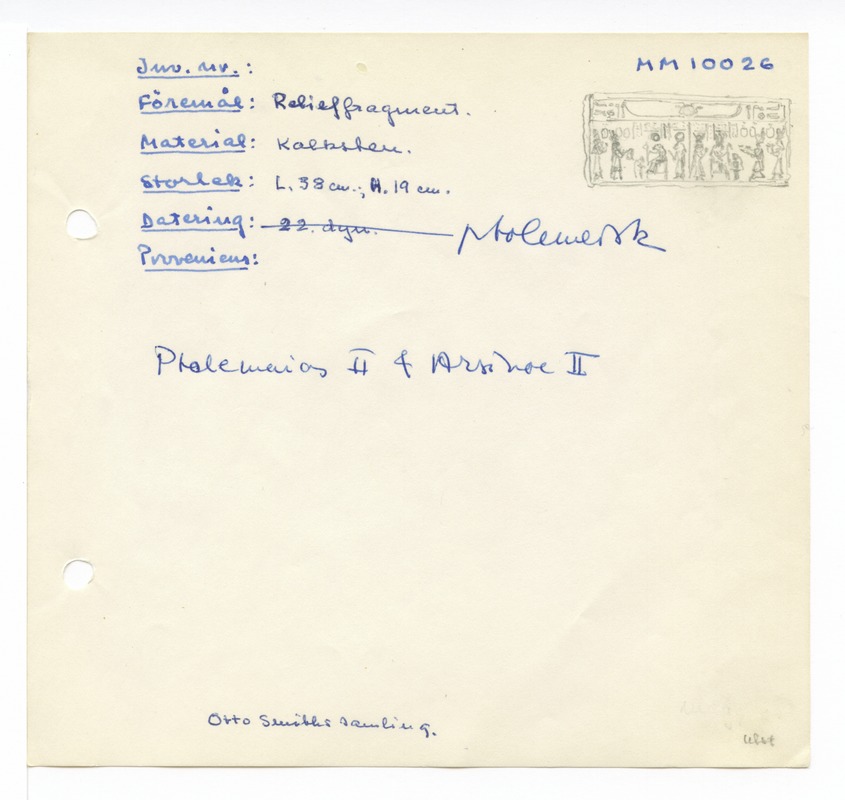 Inv. nr.: MM 10026
Föremål: Relieffragment.
Material: Kalksten.
Storlek: L. 38 cm.; H. 19 cm.
Datering: 22. dyn. ptolemeisk
Proveniens:
Ptolemaios II & Arsinoe II
Otto Smiths samling.